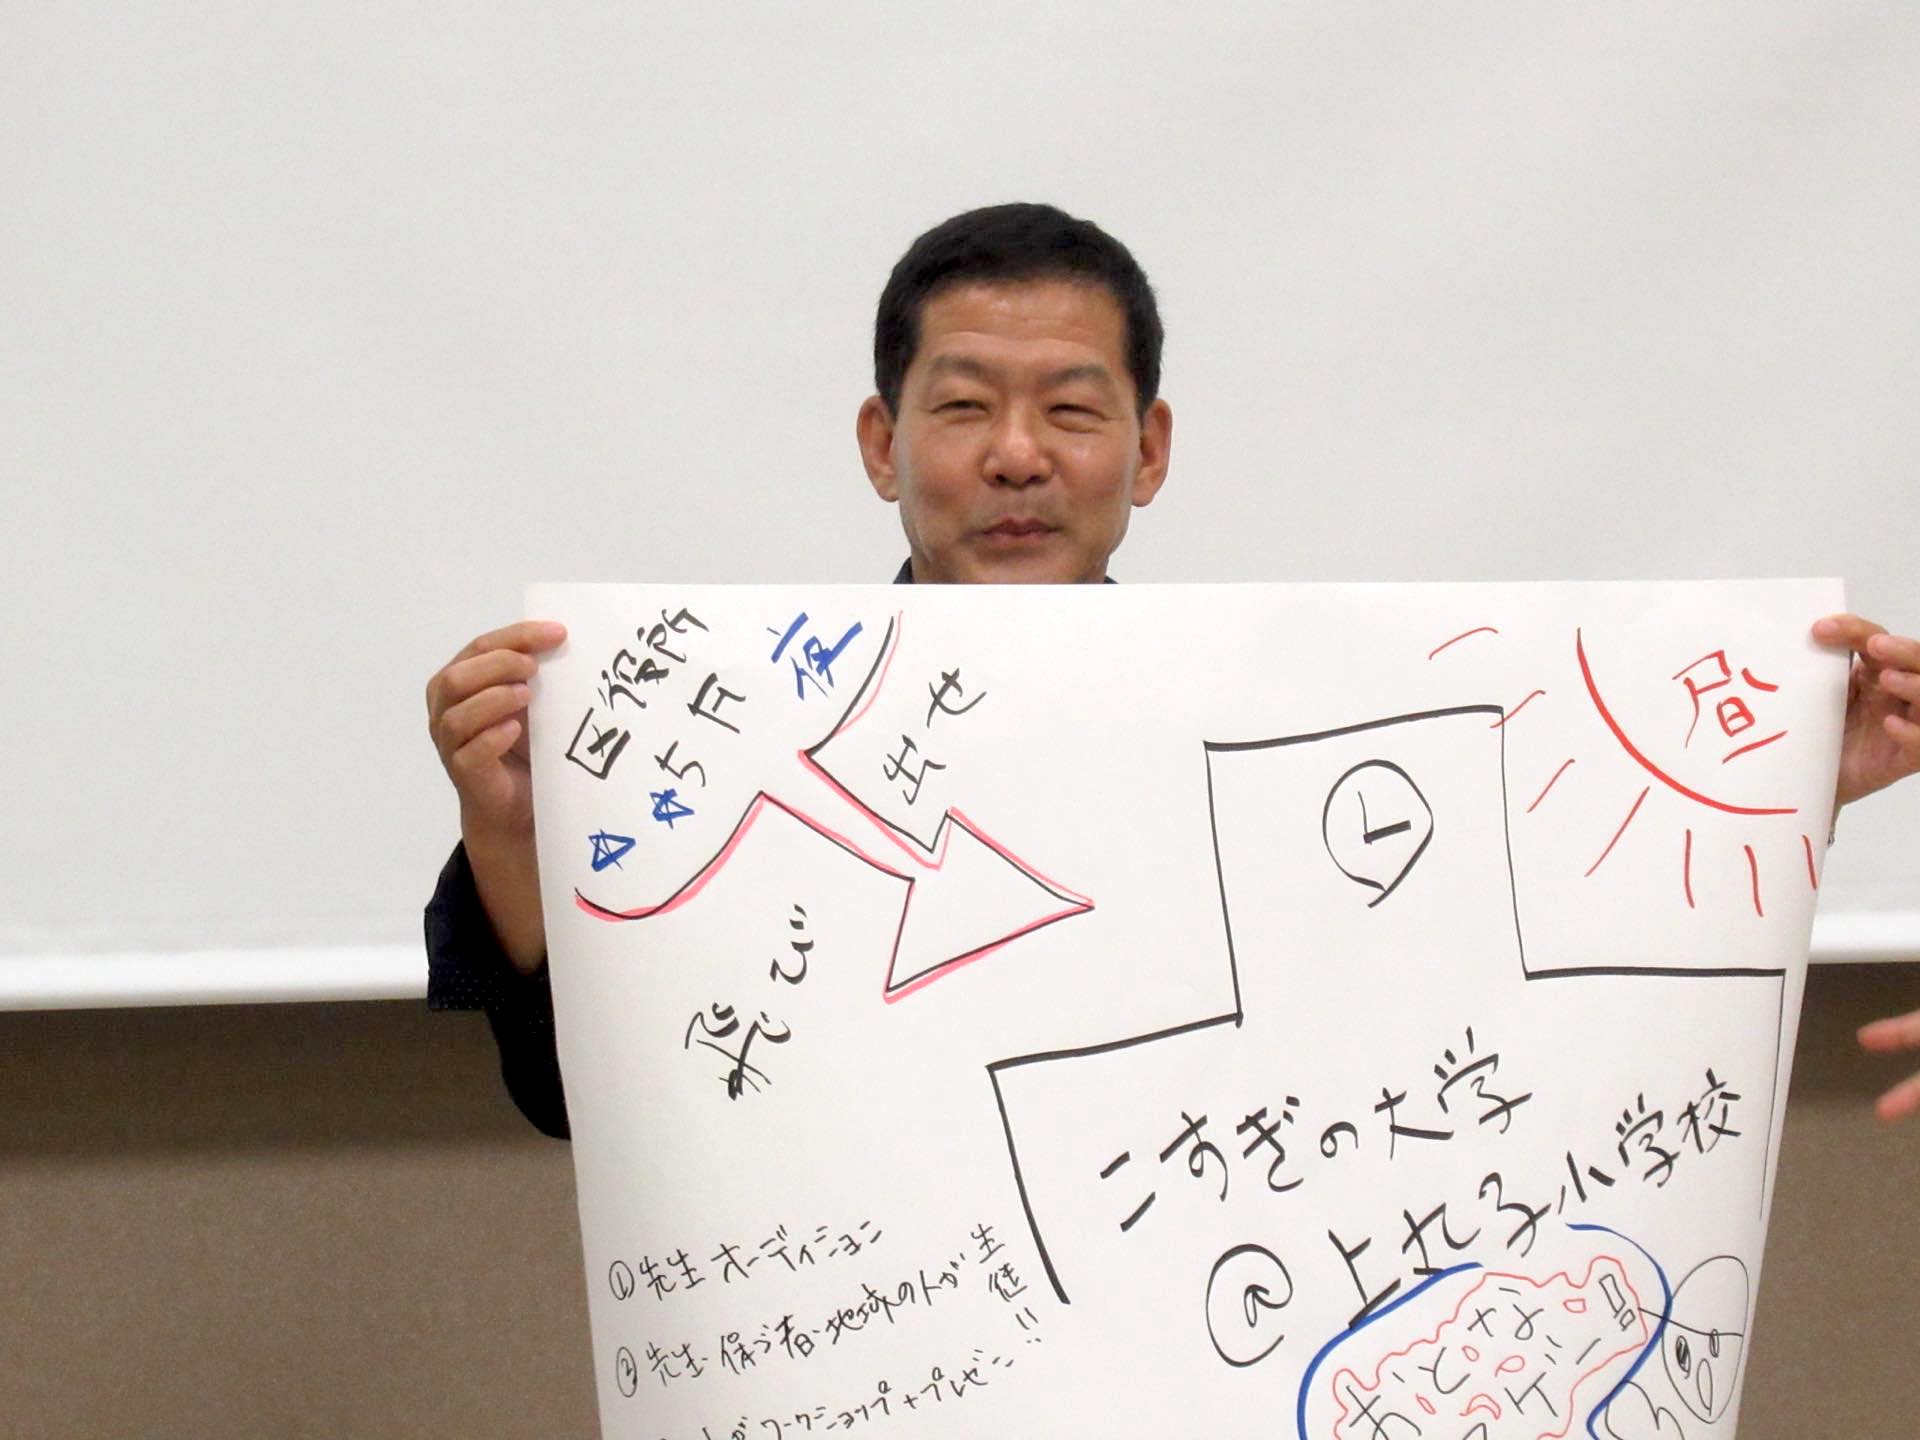 区役所
夜
出せ
昼
飛び
こすぎの大学
@上丸子小学校
①先生オーディション
②先生・保ゴ者・地域の人が生徒!!
がワークショップ+プレゼン
おとな
スゲー!